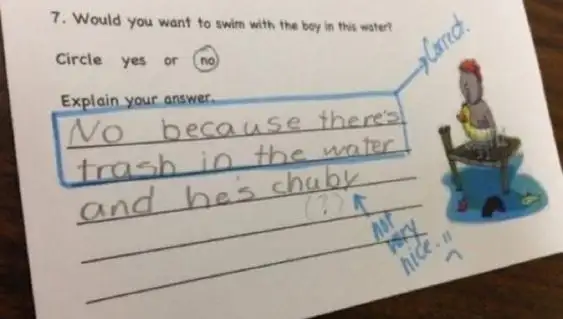 7. Would you want to swim with the boy in this water?
Circle yes or no
Explain your answer.
No because there's
trash in the water
and he's chuby
(?)
Correct.
not
very
nice.